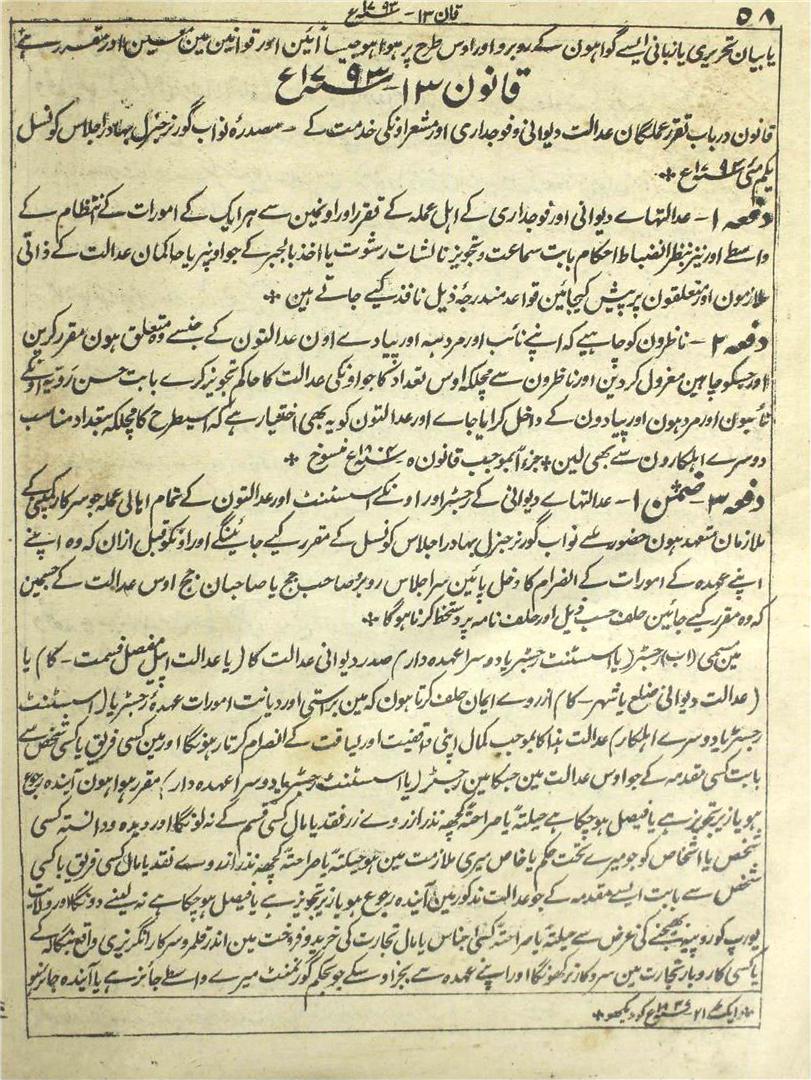 ۵۸
قانون ۱۳ - سنہ ۱۷۹۳ع
یا بیان تحریری یا زبانی ایسے گواہون کے روبرو اور اوس طرح پر ہوا ہو جیسا آئین اور قوانین مین معین اور مقرر ہے
قانون ۱۳ سنہ ۱۷۹۳ع
قانون در باب تقرر عملگان عدالت دیوانی و فوجداری اور مشعر اونکی خدمت کے - مصدرہ نواب گورنر جنرل بہادر اجلاس کونسل
یکم مئی سنہ ۱۷۹۳ع *
دفعہ ۱ - عدالتہاے دیوانی اور فوجداری کے اہل عملہ کے تقرر اور اونمین سے ہر ایک کے امورات کے انتظام کے
واسطے اور نیز بنظر انضباط احکام بابت سماعت و تجویز نالشات رشوت یا اخذ بالجبر کے جو اونپر یا حاکمان عدالت کے ذاتی
ملازمون اور متعلقون پر پیش کیجائین قواعد مندرجۂ ذیل نافذ کیے جاتے ہین *
دفعہ ۲ - ناظرون کو چاہیے کہ اپنے نائب اور مردہہ اور پیادے اون عدالتون کے جنسے وہ متعلق ہون مقرر کرین
اور جسکو چاہین معزول کر دین اور ناظرون سے مچلکہ اوس تعداد کا جو اونکی عدالت کا حاکم تجویز کرے بابت حسن رویہ اونکے
نائبون اور مردہون اور پیادون کے داخل کرایا جاے اور عدالتون کو یہ بھی اختیار ہے کہ اسیطرح کا مچلکہ بتعداد مناسب
دوسرے اہلکارون سے بھی لین * جزءً بموجب قانون ۵ سنہ ۱۸۰۴ع منسوخ *
دفعہ ۳ - ضمن ۱ - عدالتہاے دیوانی کے رجسٹر اور اونکے اسسٹنٹ اور عدالتون کے تمام اہالی عملہ جو سرکار کمپنی کے
ملازمان متعہد ہون حضور سے نواب گورنر جنرل بہادر اجلاس کونسل کے مقرر کیے جائینگے اور اونکو قبل ازان کہ وہ اپنے
اپنے عہدہ کے امورات کے انصرام کا دخل پائین سر اجلاس روبرو صاحب جج یا صاحبان جج اوس عدالت کے جسمین
کہ وہ مقرر کیے جائین حلف حسب ذیل اور حلف نامہ پر دستخط کرنا ہوگا *
مین مسمی (اب) رجسٹر (یا اسسٹنٹ رجسٹر یا دوسرا عہدہ دار) صدر دیوانی عدالت کا (یا عدالت اپیل مفصل قسمت - کام یا
(عدالت دیوانی ضلع یا شہر - کام ازروے ایمان حلف کرتا ہون کہ مین براستی اور دیانت امورات عہدۂ رجسٹر یا (اسسٹنٹ
رجسٹر یا دوسرے اہلکار) عدالت ہذا کا بموجب کمال اپنی واقفیت اور لیاقت کے انصرام کرتا رہونگا اور مین کسی فریق یا کسی شخص سے
بابت کسی مقدمہ کے جو اوس عدالت مین جسکا مین رجسٹر (یا اسسٹنٹ رجسٹر یا دوسرا عہدہ دار) مقرر ہوا ہون آیندہ رجوع
ہو یا زیر تجویز ہے یا فیصل ہو چکا ہے حیلتہً یا صراحتہً کچھہ نذر ازروے زر نقد یا مال کسی قسم کے نہ لونگا اور دیدہ و دانستہ کسی
شخص یا اشخاص کو جو میرے تحت حکم یا خاص میری ملازمت مین ہو حیلتہً یا صراحتہً کچھہ نذر ازروے نقد یا مال کسی فریق یا کسی
شخص سے بابت ایسے مقدمہ کے جو عدالت مذکور مین آیندہ رجوع ہو یا زیر تجویز ہے یا فیصل ہو چکا ہے نہ لینے دونگا اور ولایت
یورپ کو روپیہ بھیجنے کی غرض سے حیلتہً یا صراحتہً کسی اجناس یا مال تجارت کی خرید و فروخت مین اندر قلمرو سرکار انگریزی واقع بنگالہ کے
یا کسی کاروبار تجارت مین سروکار نرکھونگا اور اپنے عہدہ سے بجز اوسکے جو بحکم گورنمنٹ میرے واسطے جائز ہے یا آیندہ جائز ہو
* ایکٹ ۲۱ سنہ ۱۸۳۶ع کو دیکھو *